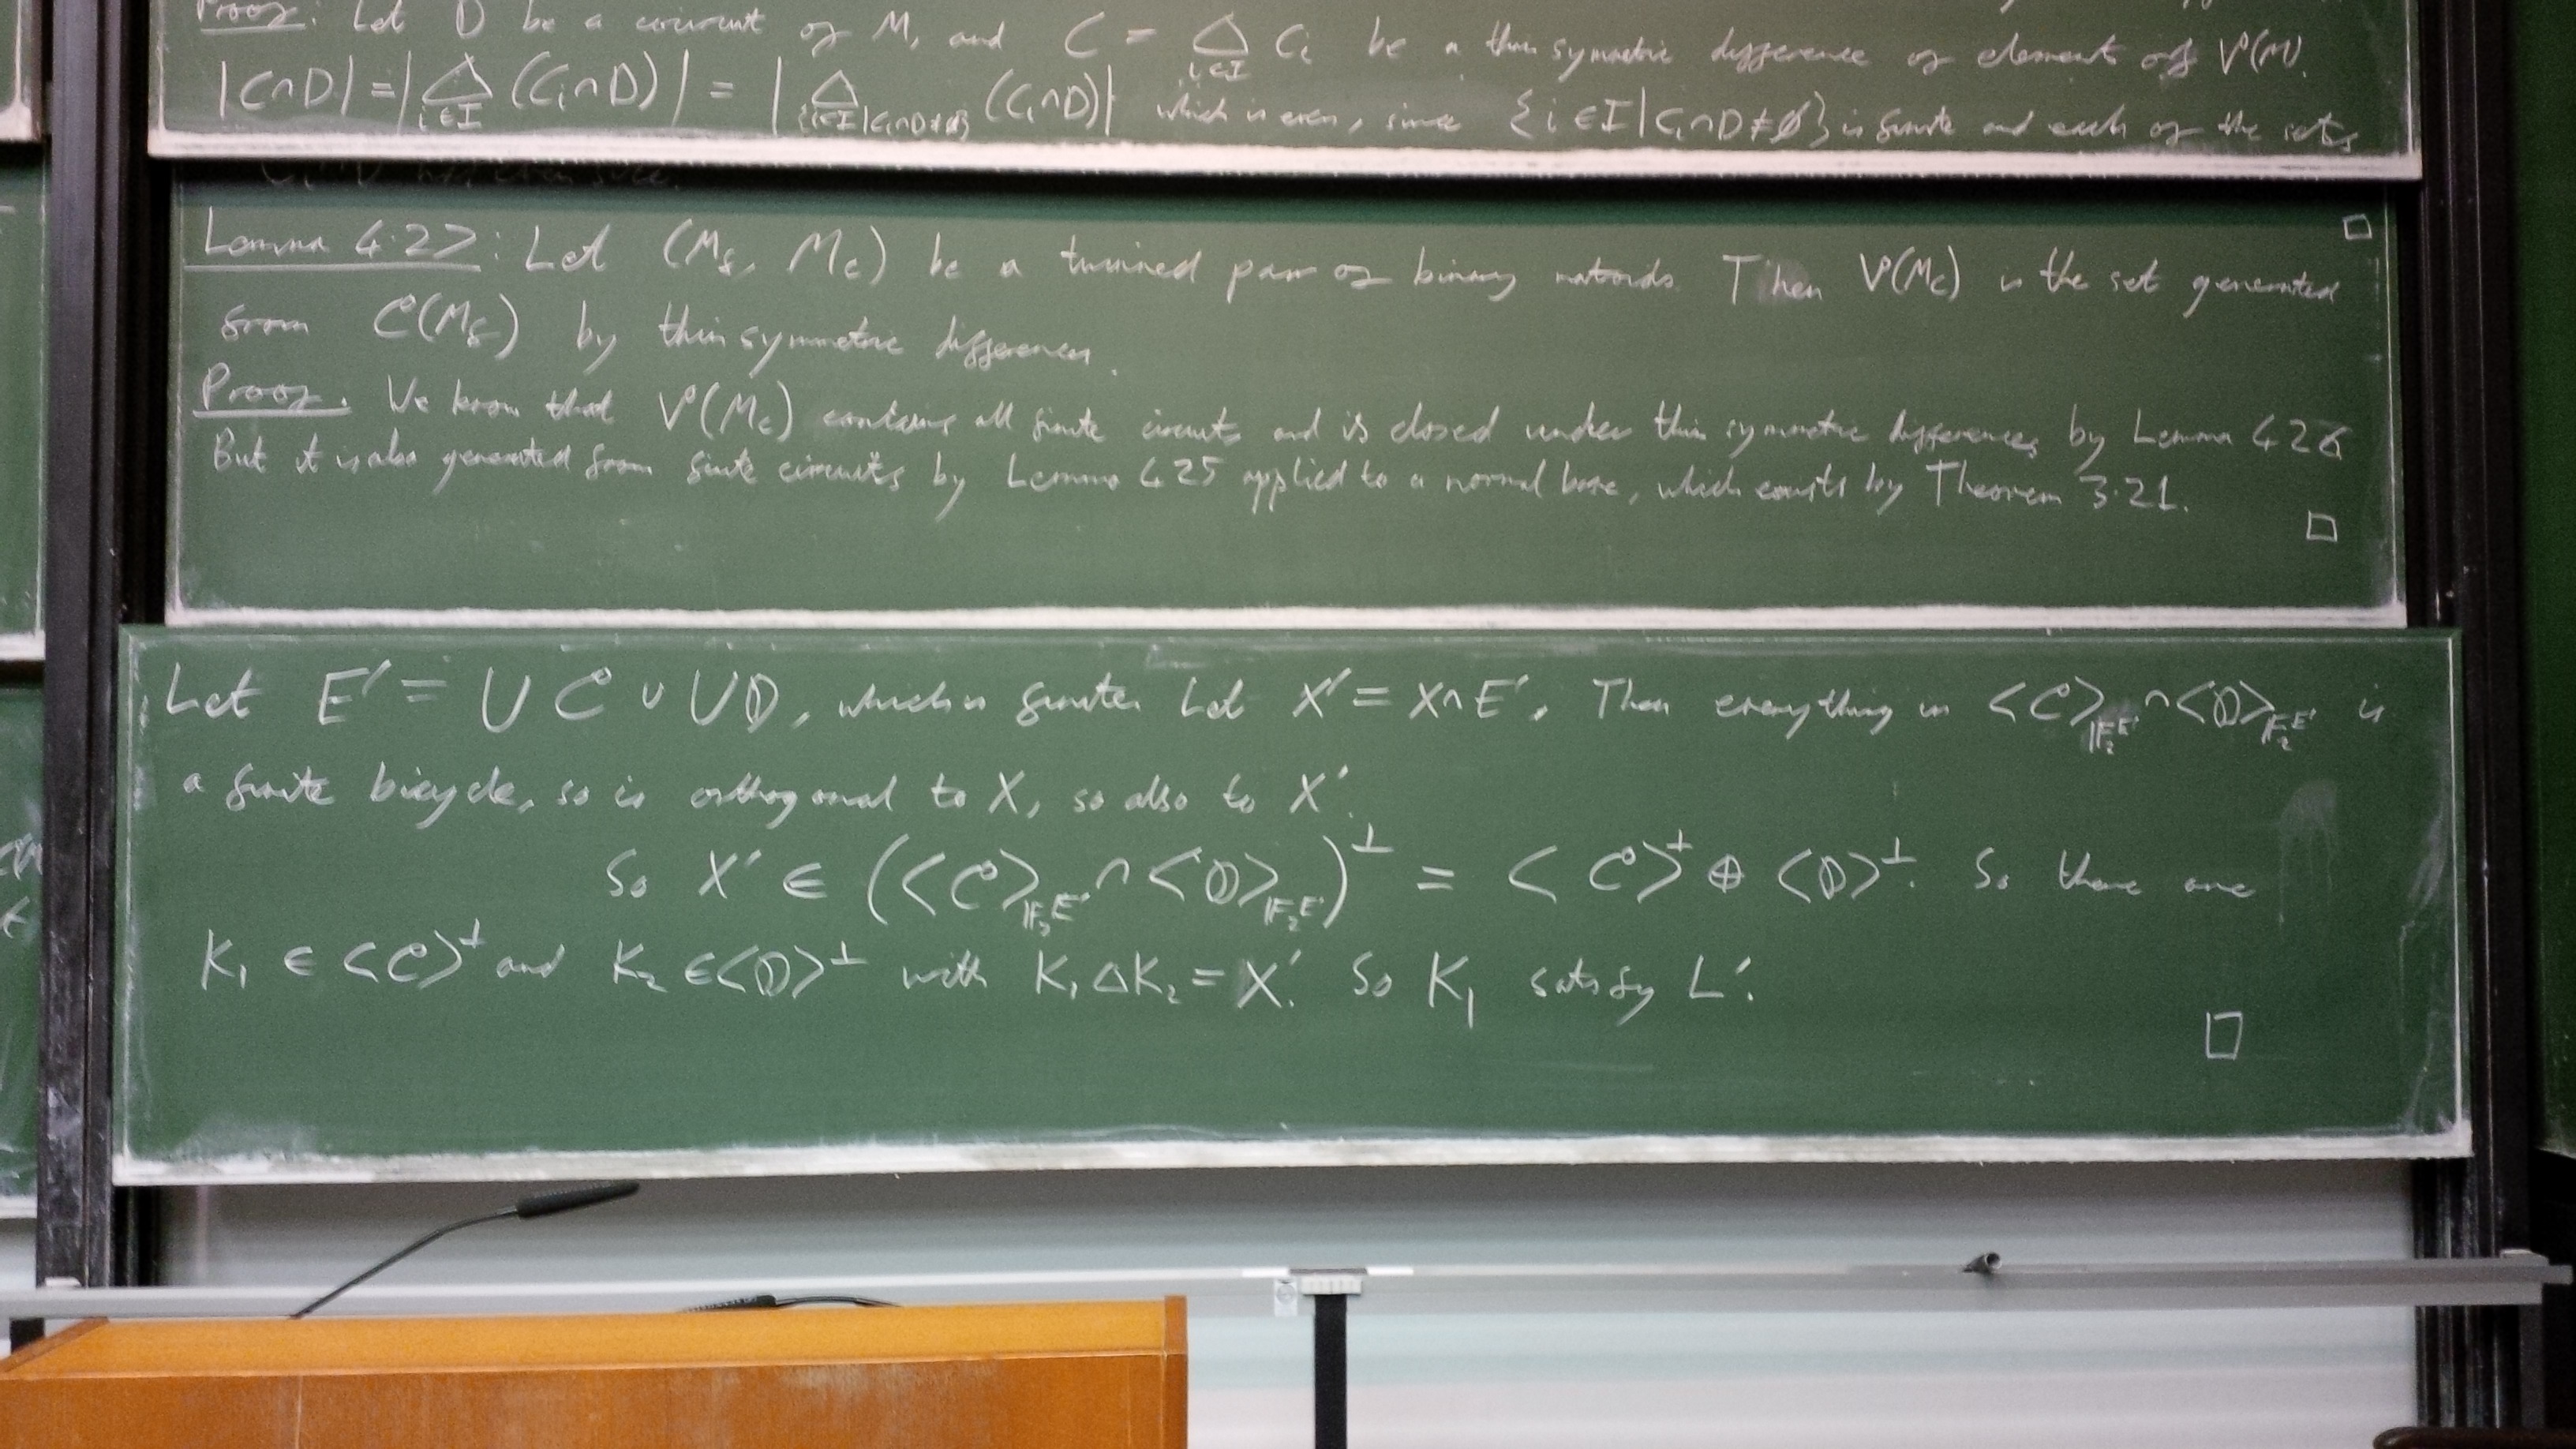 Proof: Let D be a cocircuit of M, and C = △_{i∈I} C_i be a thin symmetric difference of elements of V(M).
|C∩D| = |△_{i∈I} (C_i∩D)| = |△_{{i∈I|C_i∩D≠∅}} (C_i∩D)| which is even, since {i∈I|C_i∩D≠∅} is finite and each of the sets
C_i∩D has even size.
□
Lemma 4.27: Let (M_f, M_c) be a twinned pair of binary matroids. Then V(M_c) is the set generated
from C(M_f) by thin symmetric differences.
Proof. We know that V(M_c) contains all finite circuits and is closed under thin symmetric differences by Lemma 4.26
But it is also generated from finite circuits by Lemma 4.25 applied to a normal base, which exists by Theorem 3.21.
□
Let E' = ∪C ∪ ∪D, which is finite. Let X' = X∩E'. Then everything in <C>_{𝔽_2^{E'}} ∩ <D>_{𝔽_2^{E'}} is
a finite bicycle, so is orthogonal to X, so also to X'.
So X' ∈ (<C>_{𝔽_2^{E'}} ∩ <D>_{𝔽_2^{E'}})^⊥ = <C>^⊥ ⊕ <D>^⊥. So there are
K_1 ∈ <C>^⊥ and K_2 ∈ <D>^⊥ with K_1 △ K_2 = X'. So K_1 satisfy L'.
□